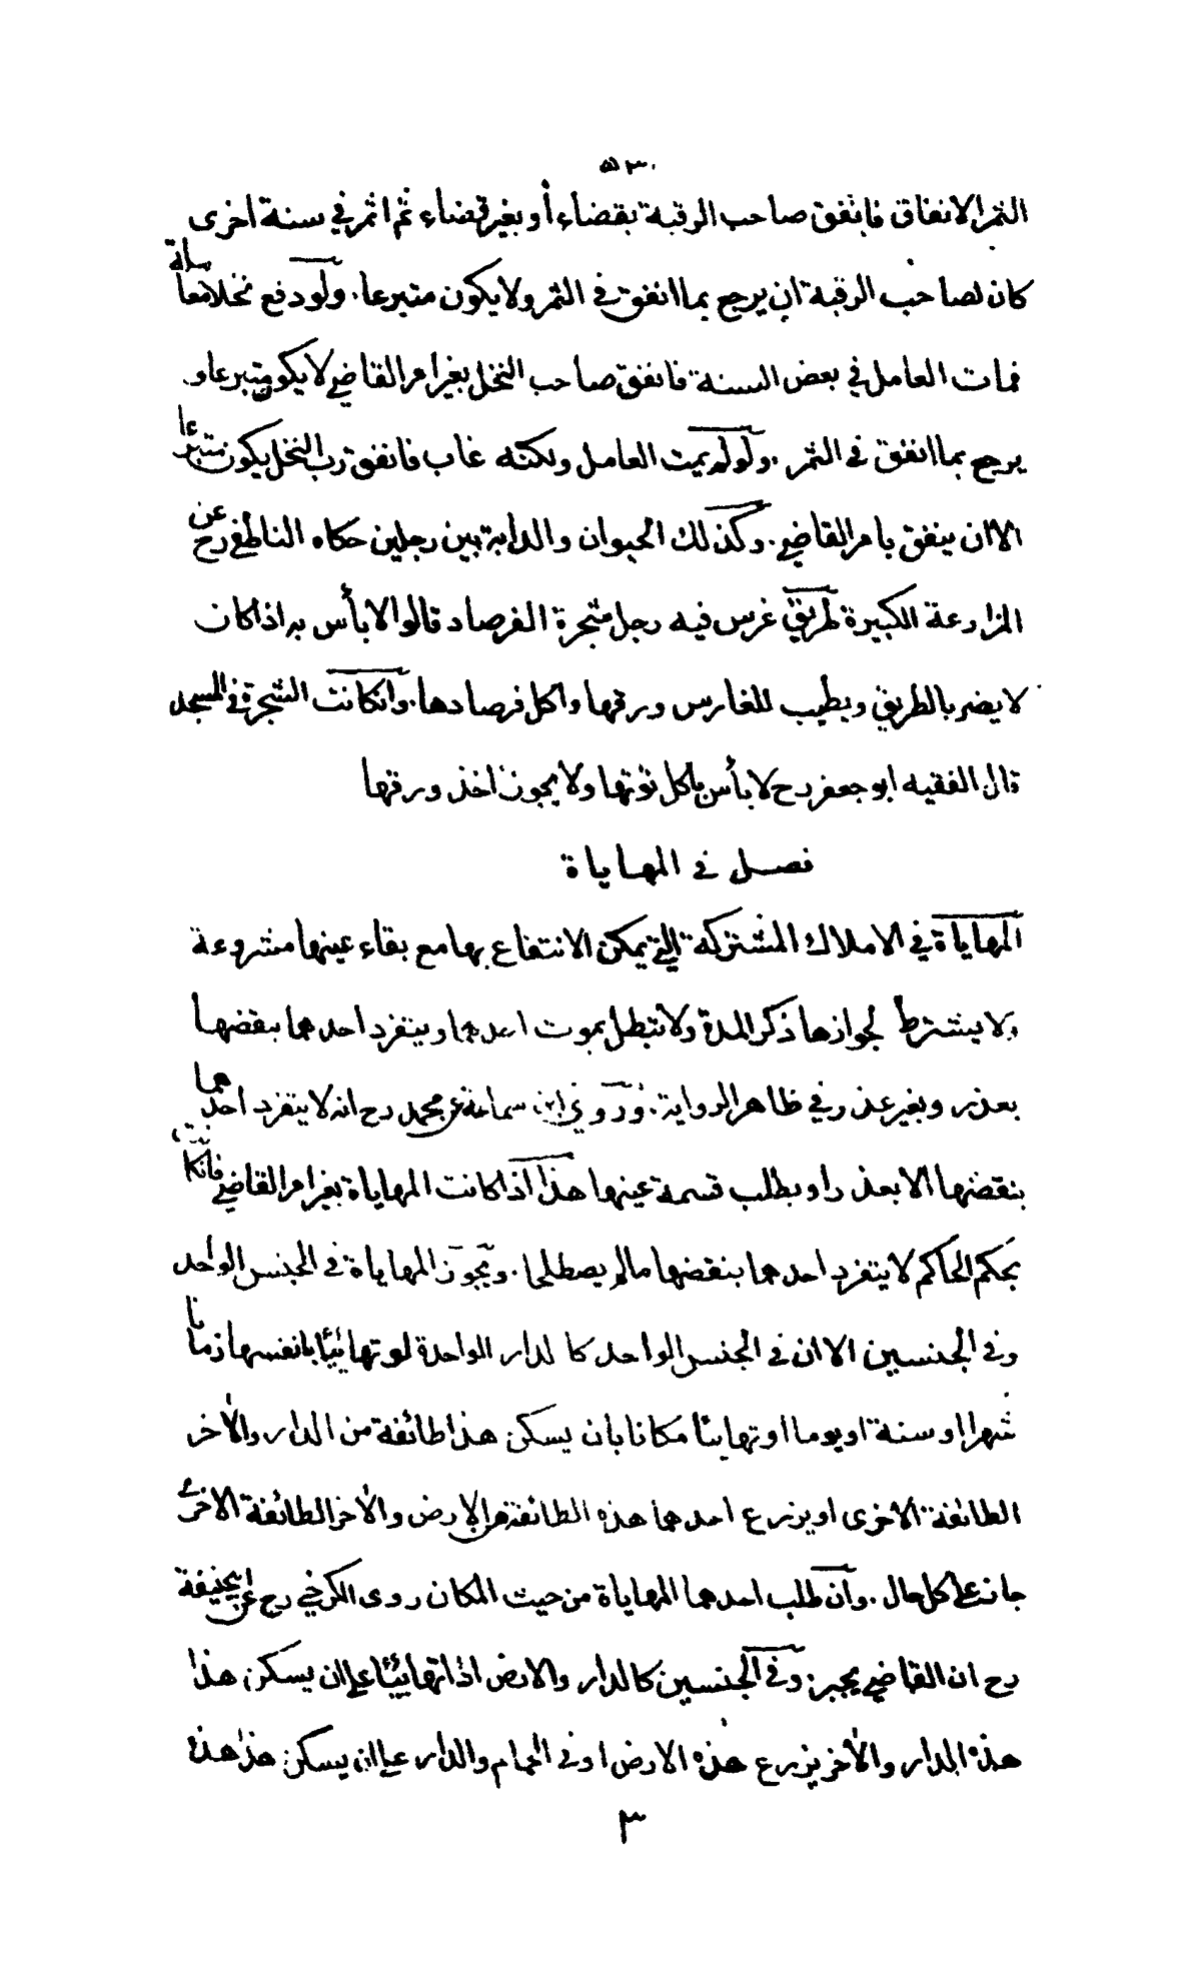 ٥٣٠
الثمر الانفاق فانفق صاحب الرقبة بقضاء أو بغير قضاء ثم اثمر في سنة اخرى
كان لصاحب الرقبة ان يرجع بما انفق في الثمر ولا يكون متبرعا . ولو دفع نخلا معاملة
فمات العامل في بعض السنة فانفق صاحب النخل بغير امر القاضي لا يكون متبرعا و
يرجع بما انفق في الثمر . ولو لم يمت العامل ولكنه غاب فانفق رب النخل يكون متبرعا
الا ان ينفق بامر القاضي . وكذلك الحيوان والدابة بين رجلين حكاه الناطفي رح عن
المزارعة الكبيرة طريق غرس فيه رجل شجرة الفرصاد قالوا لا بأس به اذا كان
لا يضر بالطريق ويطيب للغارس ورقها واكل فرصادها . وانكانت الشجرة في المسجد
قال الفقيه ابو جعفر رح لا بأس باكل توتها ولا يجوز اخذ ورقها
فصل في المهاياة
المهاياة في الاملاك المشتركة التي يمكن الانتفاع بها مع بقاء عينها مشروعة
ولا يشترط لجوازها ذكر المدة ولا تبطل بموت احدهما وينفرد احدهما بنقضها
بعذر وبغير عذر في ظاهر الرواية . وروي ابن سماعة عن محمد رح انه لا ينفرد احدهما
بنقضها الا بعذر او بطلب قسمة عينها هذا اذا كانت المهاياة بغير امر القاضي فانكانت
بحكم الحاكم لا ينفرد احدهما بنقضها ما لم يصطلحا . ويجوز المهاياة في الجنس الواحد
وفي الجنسين الا ان في الجنس الواحد كا لدار الواحدة لو تهايئا بانفسهما زمانا
شهرا او سنة او يوما او تهايئا مكانا بان يسكن هذا طائفة من الدار والآخر
الطائفة الاخرى او يزرع احدهما هذه الطائفة من الارض والآخر الطائفة الاخرى
جاز على كل حال . وان طلب احدهما المهاياة من حيث المكان روى الكرخي رح عن ابيحنيفة
رح ان القاضي يجبر . وفي الجنسين كالدار والارض اذا تهايئا على ان يسكن هذا
هذه الدار والآخر يزرع هذه الارض او في الحمام والدار على ان يسكن هذا هذه
٣